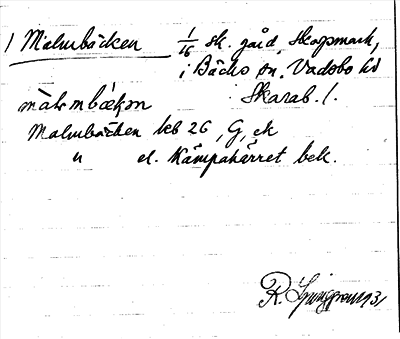 1 Malmbäcken 1/16 sk. gård, Skogsmark,
i Bäcks sn, Vadsbo hd
Skarab. l.
Malmbäcken leb 26, G, ek
" el. Kämpakärret bek.
R. Ljunggren 1931